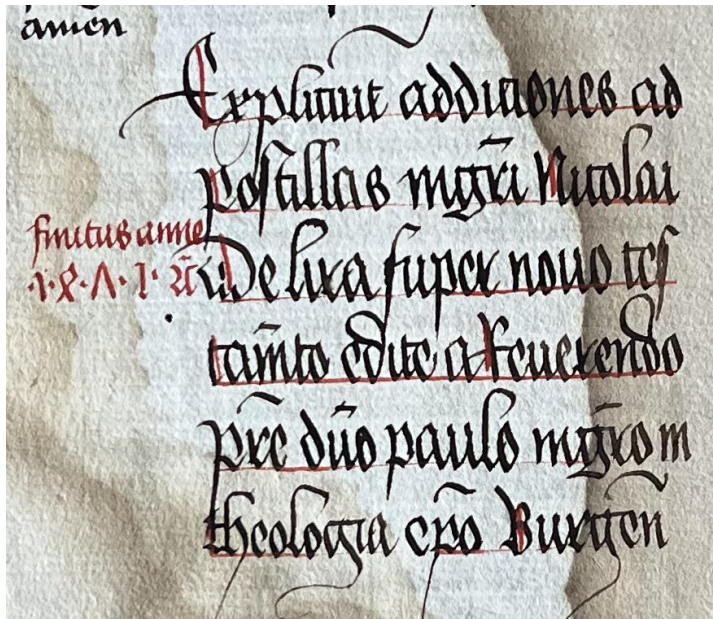 amen
Expliciut additiones ad
postillas mgri̅ Nicolai
De lira super nouo tes
tam̅to edite a Reuerendo
pr̅e dn̅o paulo mgr̅o in
theologia ep̅o Burgen̅
finitus anno